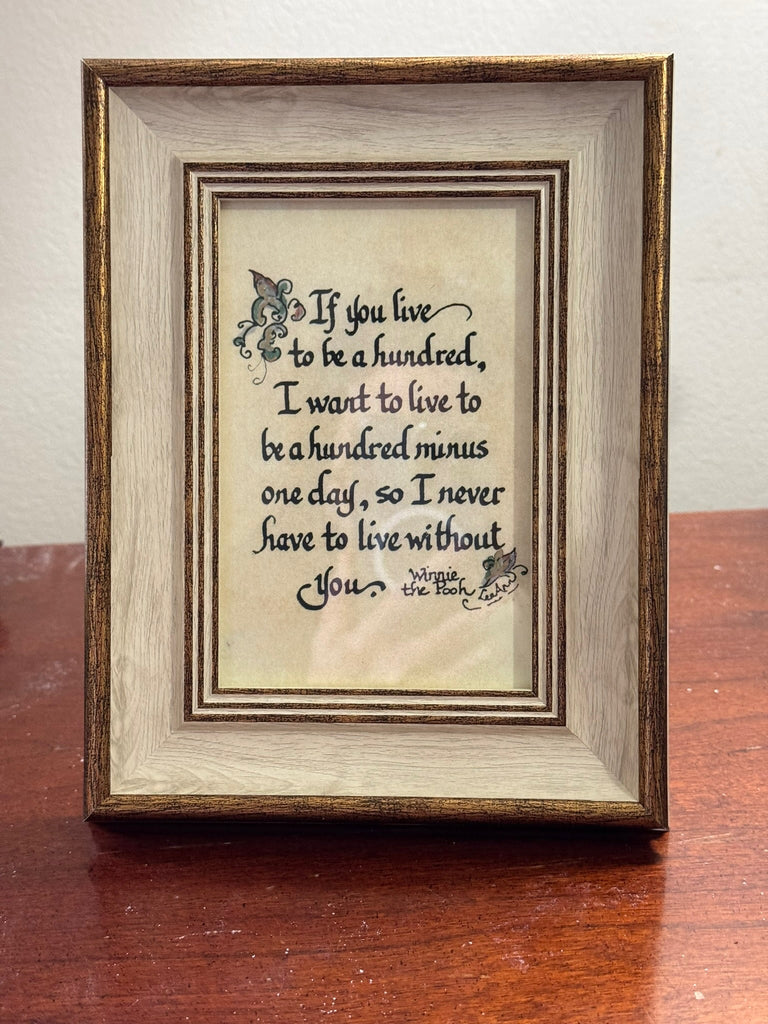 If you live
to be a hundred,
I want to live to
be a hundred minus
one day, so I never
have to live without
you.
Winnie
the Pooh
LeeAnn